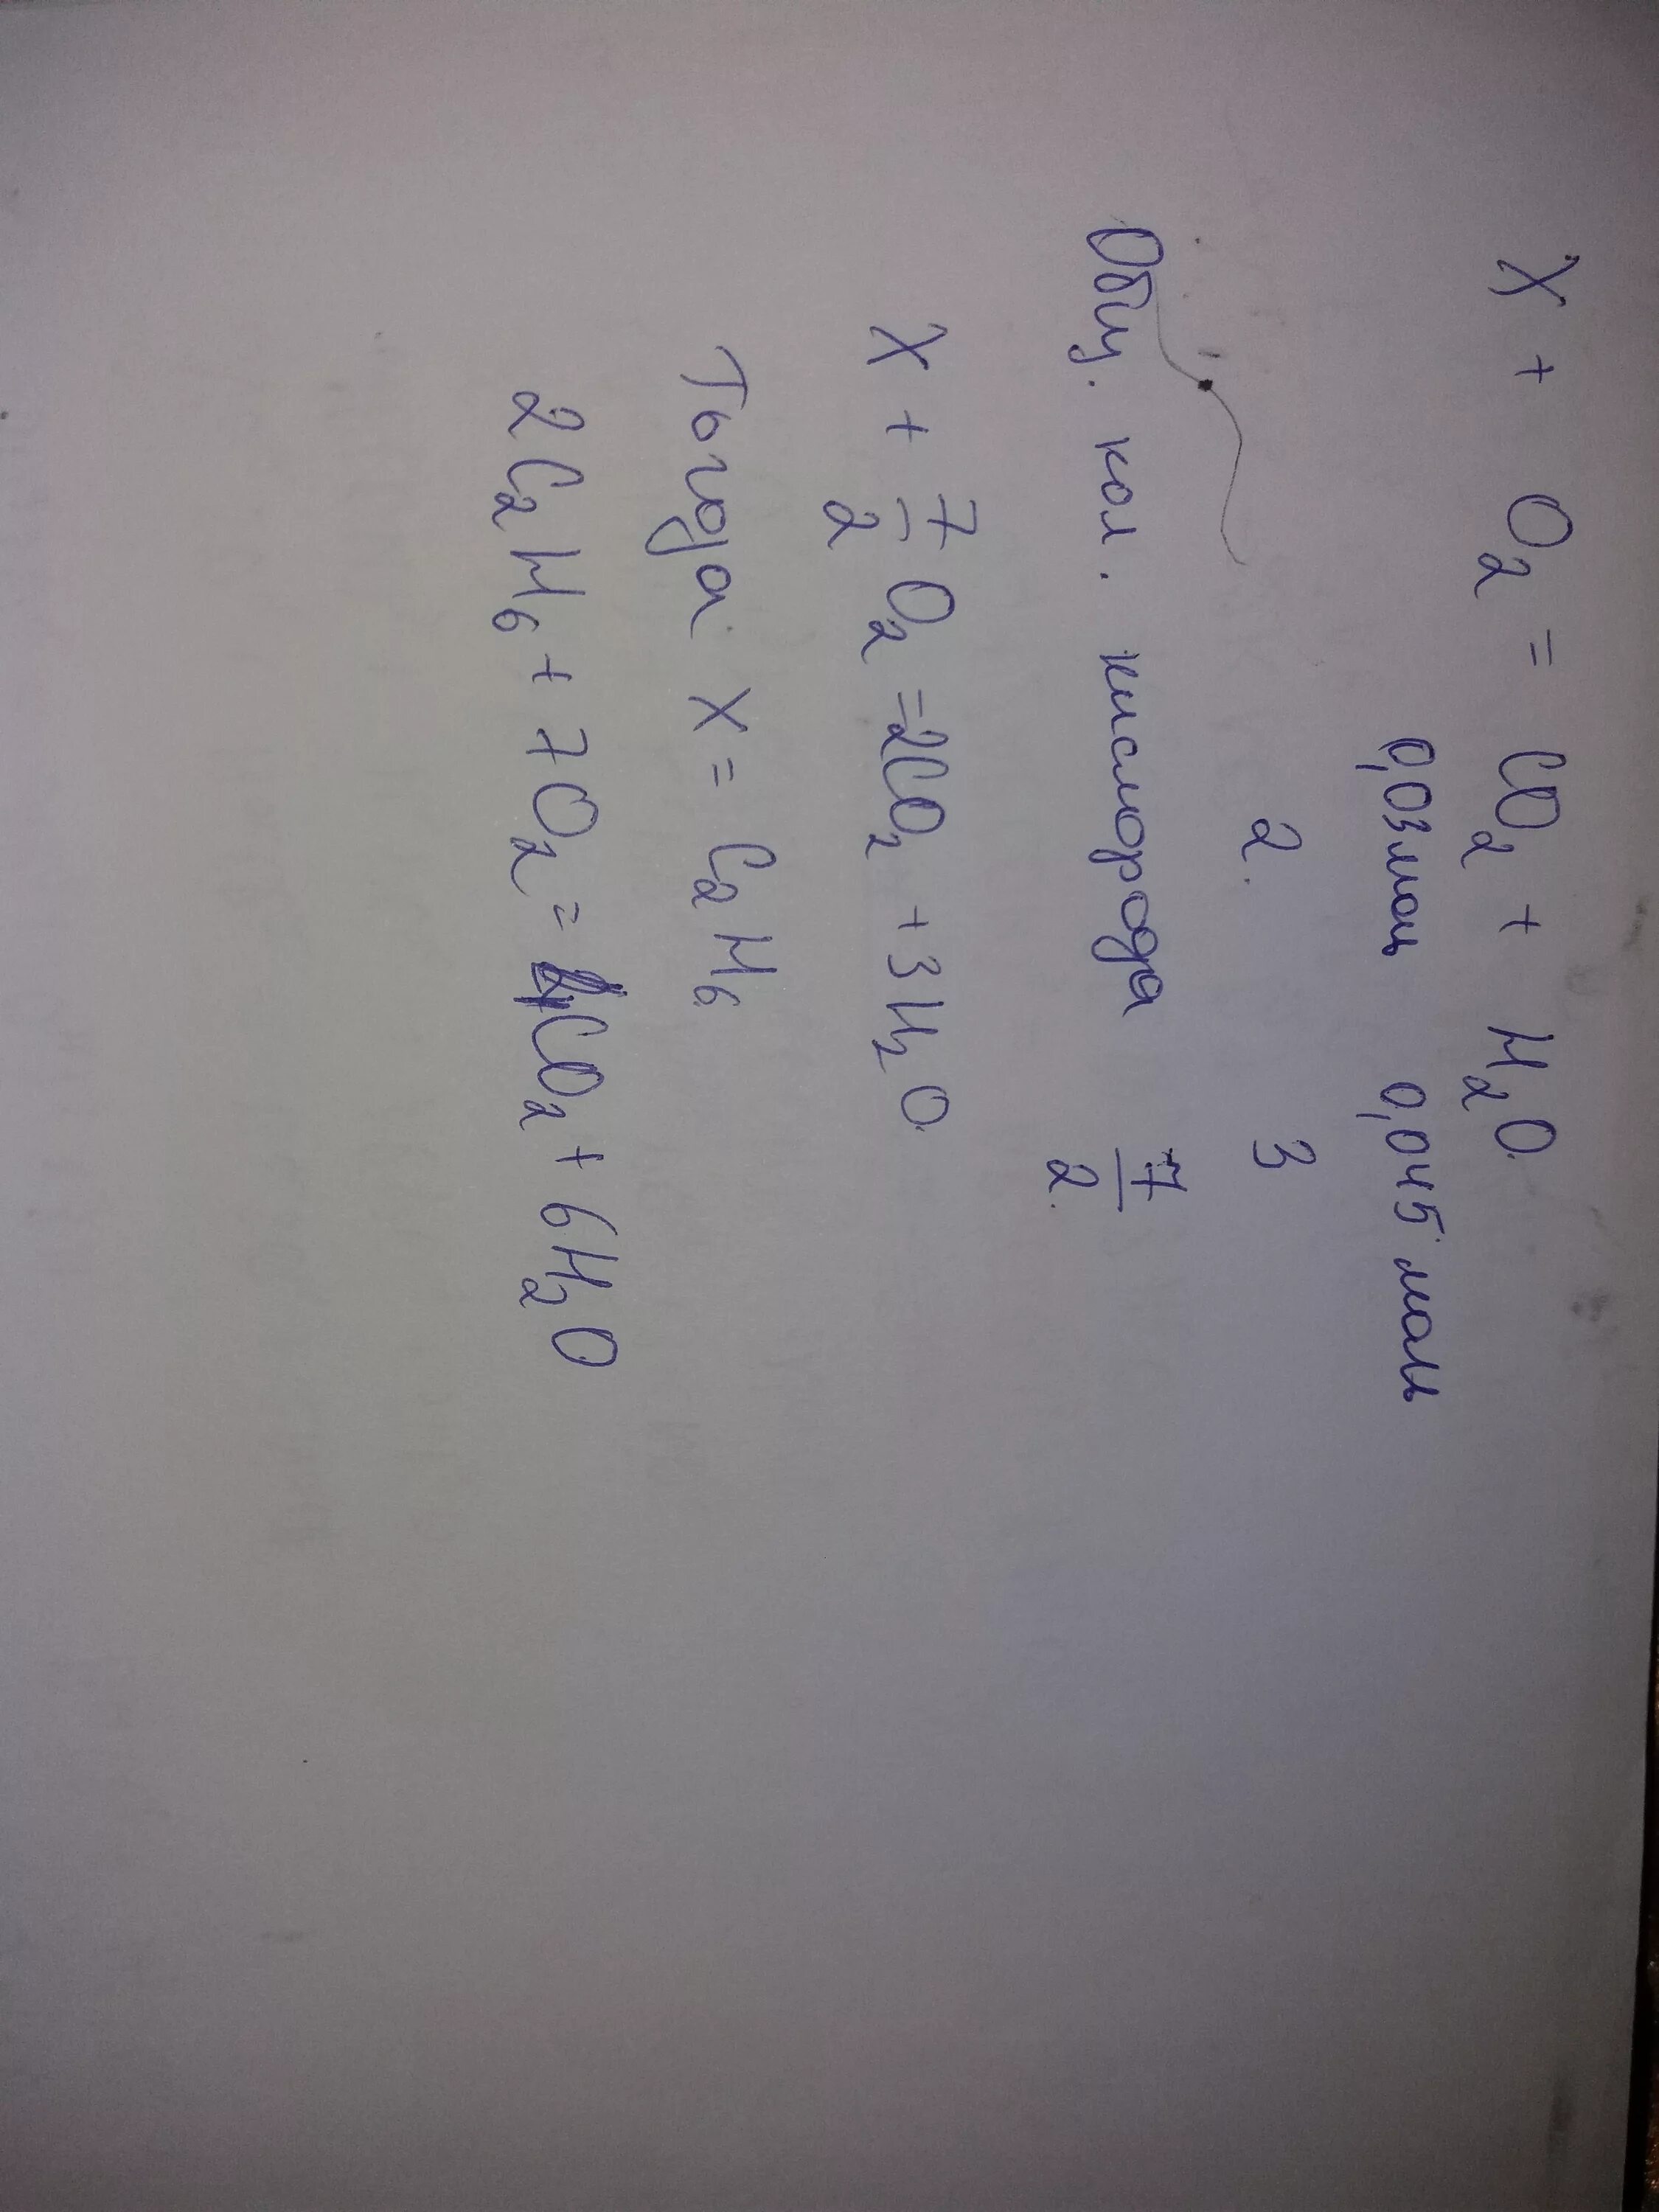 X + O₂ = CO₂ + H₂O.
0,03 моль 0,045 моль
2. 3
Общ. кол. кислорода 7/2.
X + 7/2 O₂ = 2CO₂ + 3H₂O.
Тогда X = C₂H₆.
2C₂H₆ + 7O₂ = 4CO₂ + 6H₂O